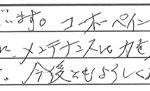 います。コーポペイン
に、メンテナンスに力を
。今後ともよろしく